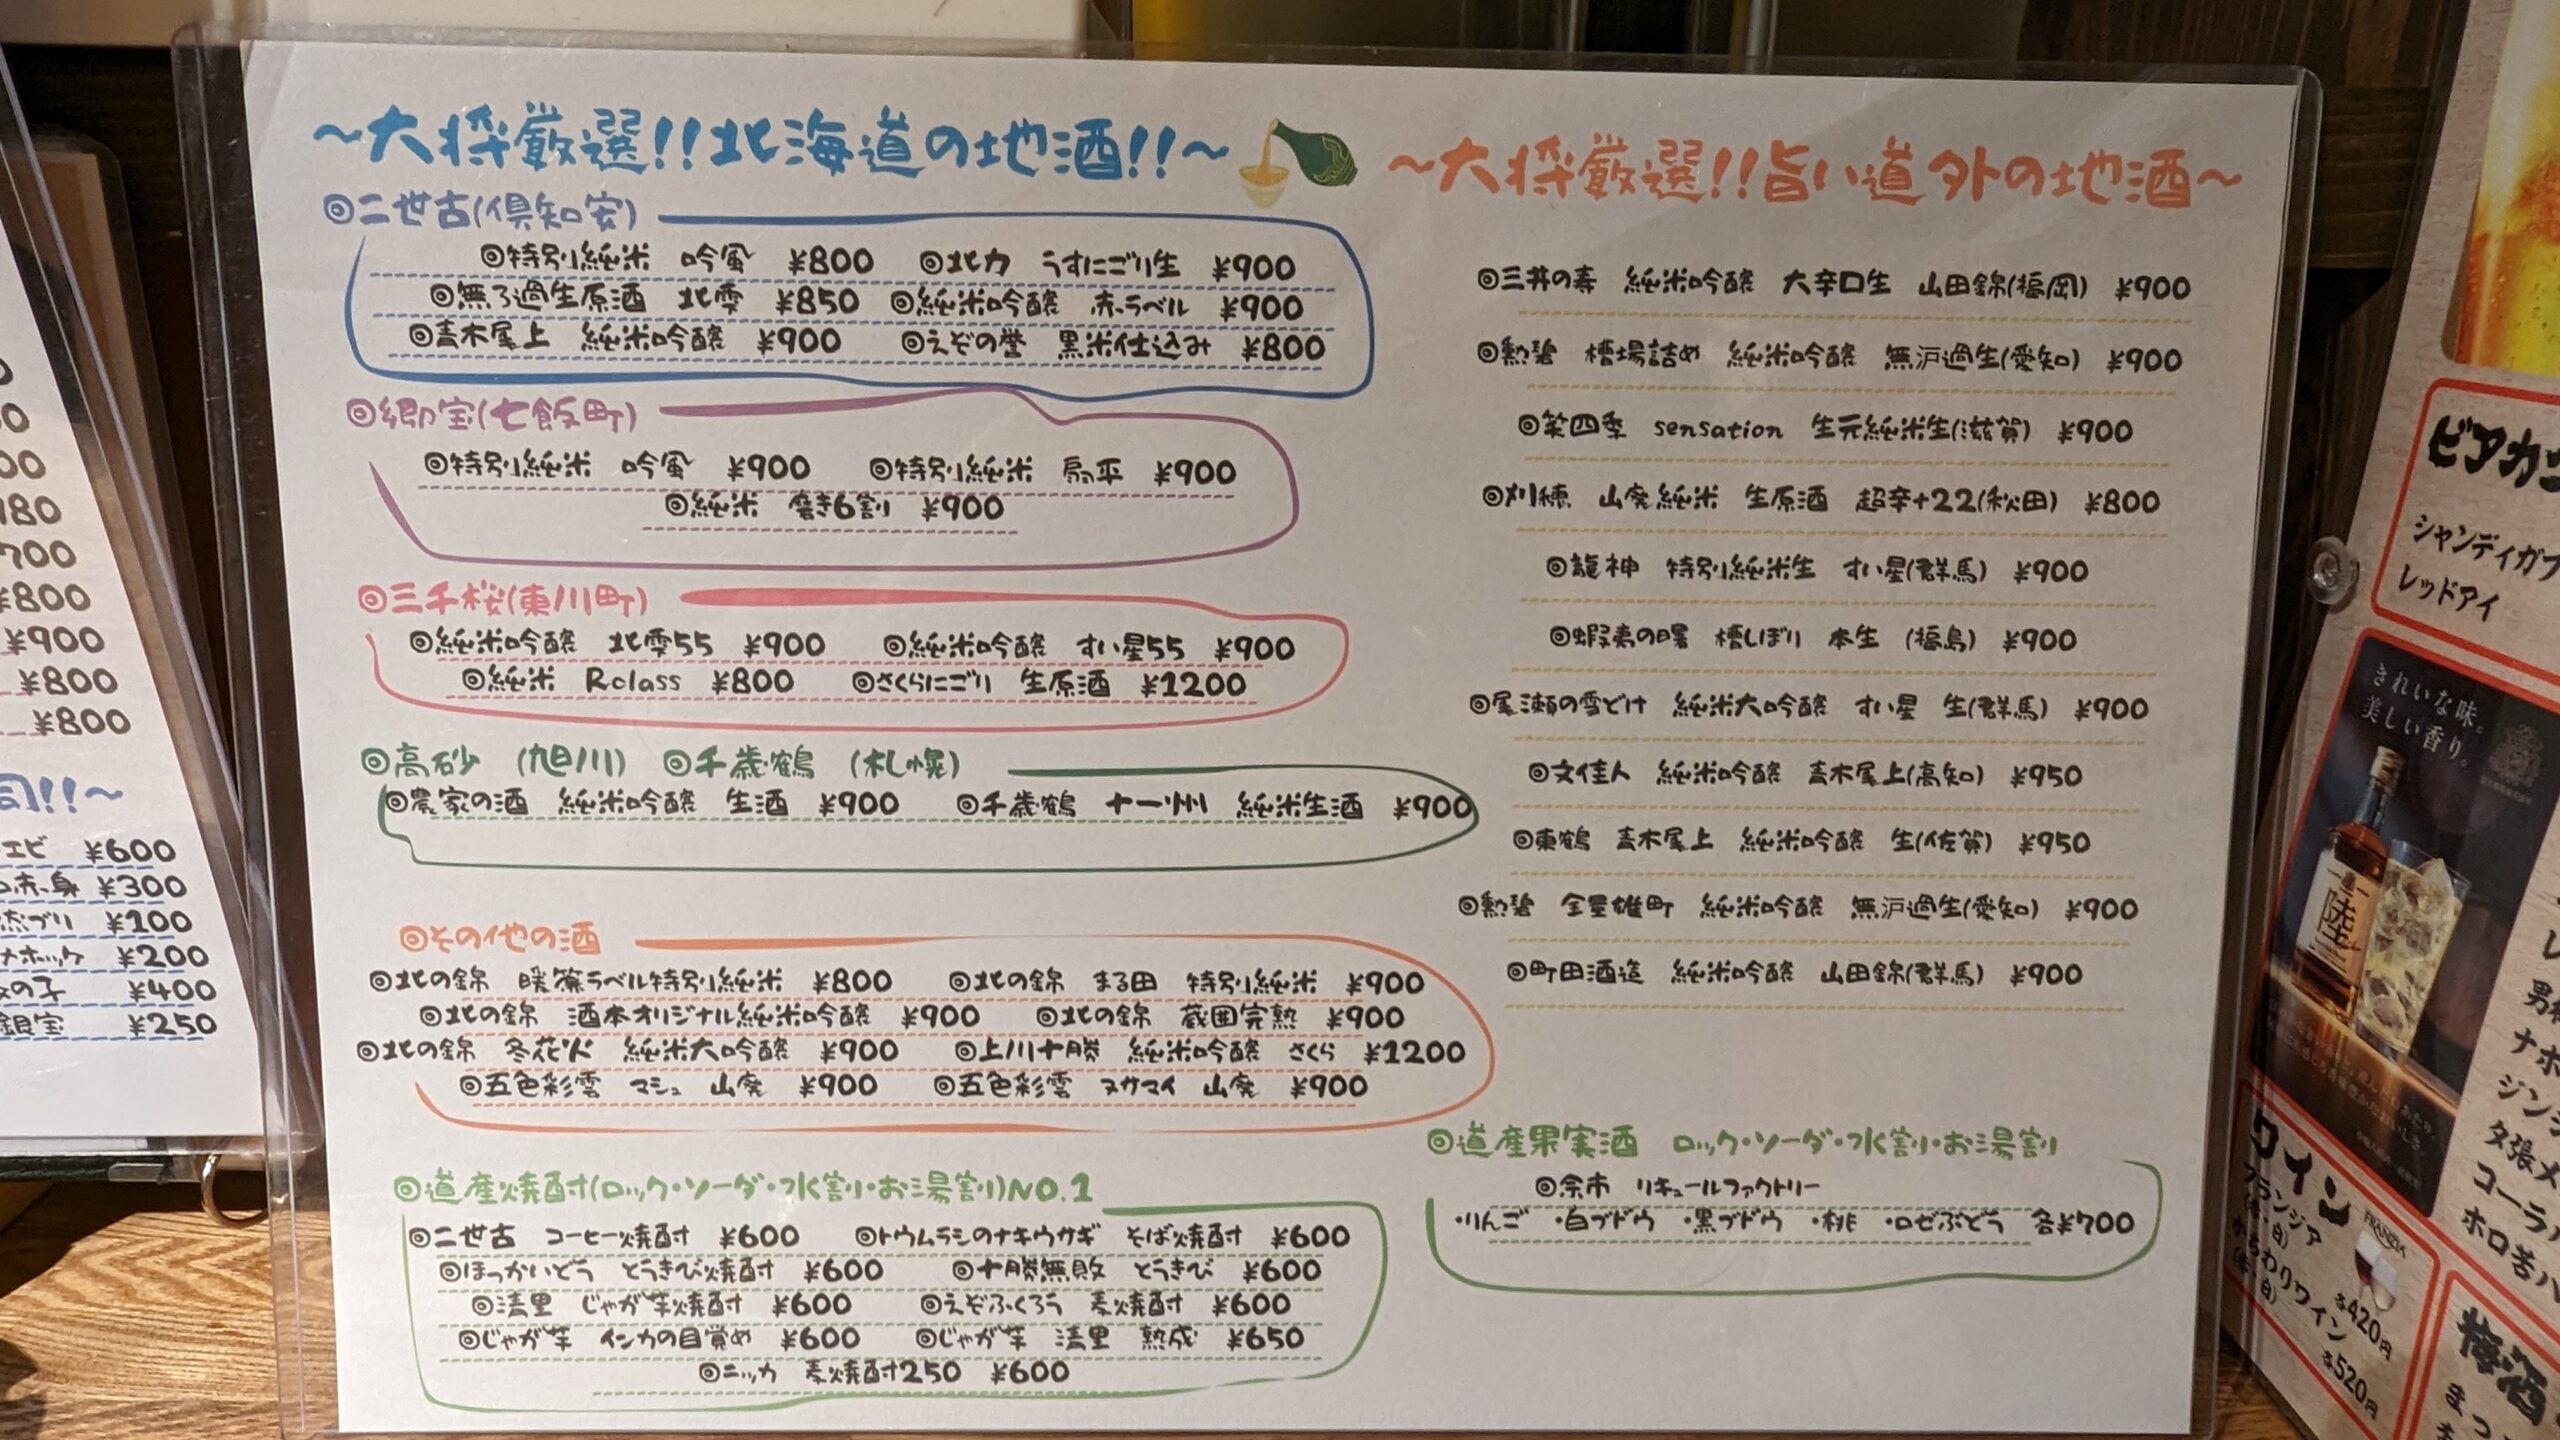 ~大将厳選!!北海道の地酒!!~
◎二世古(倶知安)
◎特別純米 吟風 ¥800 ◎北力 うすにごり生 ¥900
◎無ろ過生原酒 北雫 ¥850 ◎純米吟醸 赤ラベル ¥900
◎青木尾上 純米吟醸 ¥900 ◎えぞの誉 黒米仕込み ¥800
◎郷宝(七飯町)
◎特別純米 吟風 ¥900 ◎特別純米 扁平 ¥900
◎純米 磨き6割 ¥900
◎三千桜(東川町)
◎純米吟醸 北雫55 ¥900 ◎純米吟醸 すい星55 ¥900
◎純米 Rclass ¥800 ◎さくらにごり 生原酒 ¥1200
◎高砂 (旭川) ◎千歳鶴 (札幌)
◎農家の酒 純米吟醸 生酒 ¥900 ◎千歳鶴 十一州 純米生酒 ¥900
◎その他の酒
◎北の錦 暖簾ラベル特別純米 ¥800 ◎北の錦 まる田 特別純米 ¥900
◎北の錦 酒本オリジナル純米吟醸 ¥900 ◎北の錦 蔵囲完熟 ¥900
◎北の錦 冬花火 純米大吟醸 ¥900 ◎上川十勝 純米吟醸 さくら ¥1200
◎五色彩雲 マシュ 山廃 ¥900 ◎五色彩雲 ヌサマイ 山廃 ¥900
◎道産焼酎(ロック・ソーダ・水割・お湯割)NO.1
◎二世古 コーヒー焼酎 ¥600 ◎トウムラシのナキウサギ そば焼酎 ¥600
◎ほっかいどう とうきび焼酎 ¥600 ◎十勝無敗 とうきび ¥600
◎清里 じゃが芋焼酎 ¥600 ◎えぞふくろう 麦焼酎 ¥600
◎じゃが芋 インカの目覚め ¥600 ◎じゃが芋 清里 熟成 ¥650
◎ニッカ 麦焼酎250 ¥600
~大将厳選!!旨い道外の地酒~
◎三井の寿 純米吟醸 大辛口生 山田錦(福岡) ¥900
◎勲碧 槽場詰め 純米吟醸 無戸過生(愛知) ¥900
◎笑四季 sensation 生元純米生(滋賀) ¥900
◎刈穂 山廃純米 生原酒 超辛+22(秋田) ¥800
◎龍神 特別純米生 すい星(群馬) ¥900
◎蝦夷の曙 槽しぼり 本生 (福島) ¥900
◎尾瀬の雪どけ 純米大吟醸 すい星 生(群馬) ¥900
◎文佳人 純米吟醸 青木尾上(高知) ¥950
◎東鶴 青木尾上 純米吟醸 生(佐賀) ¥950
◎勲碧 全量雄町 純米吟醸 無戸過生(愛知) ¥900
◎町田酒造 純米吟醸 山田錦(群馬) ¥900
◎道産果実酒 ロック・ソーダ・水割・お湯割
◎余市 リキュールファクトリー
・りんご ・白ブドウ ・黒ブドウ ・桃 ・ロゼぶどう 各¥700
180
¥800
¥900
¥800
¥800
!!~
エビ ¥600
赤身 ¥300
ブリ ¥100
ホッケ ¥200
の子 ¥400
銀宝 ¥250
ビアカ
シャンディガフ
レッドアイ
きれいな味。
美しい香り。
陸
ワイン
フランジア
(赤・白)
各420円
かちわりワイン
(赤・白)
各520円
FRANZIA
ナポ
ジン
夕張メ
コーラ
ホロ苦ハ
梅酒